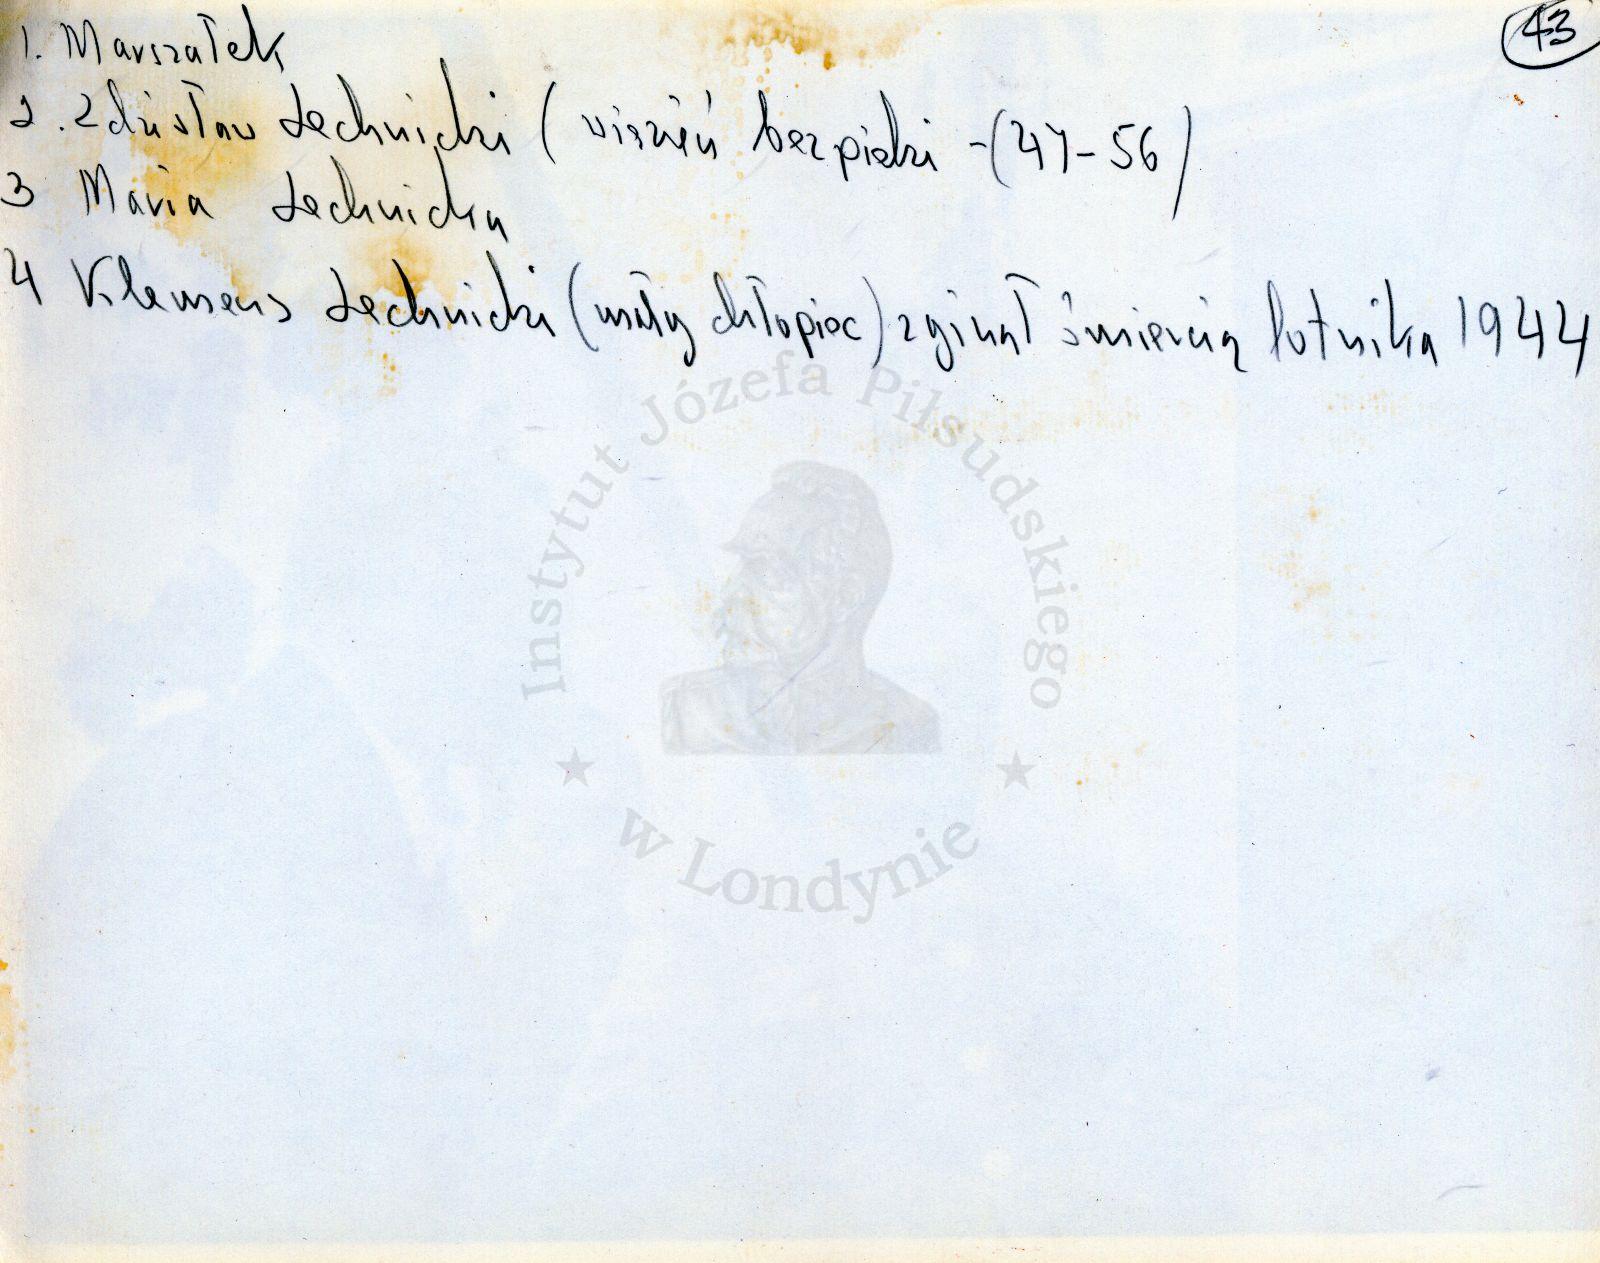 43
1. Marszałek
2. Zdzisław Lechnicki (więzień bezpieki - (47-56)
3 Maria Lechnicka
4 Klemens Lechnicki (mały chłopiec) zginął śmiercią lotnika 1944
Instytut Józefa Piłsudskiego
w Londynie